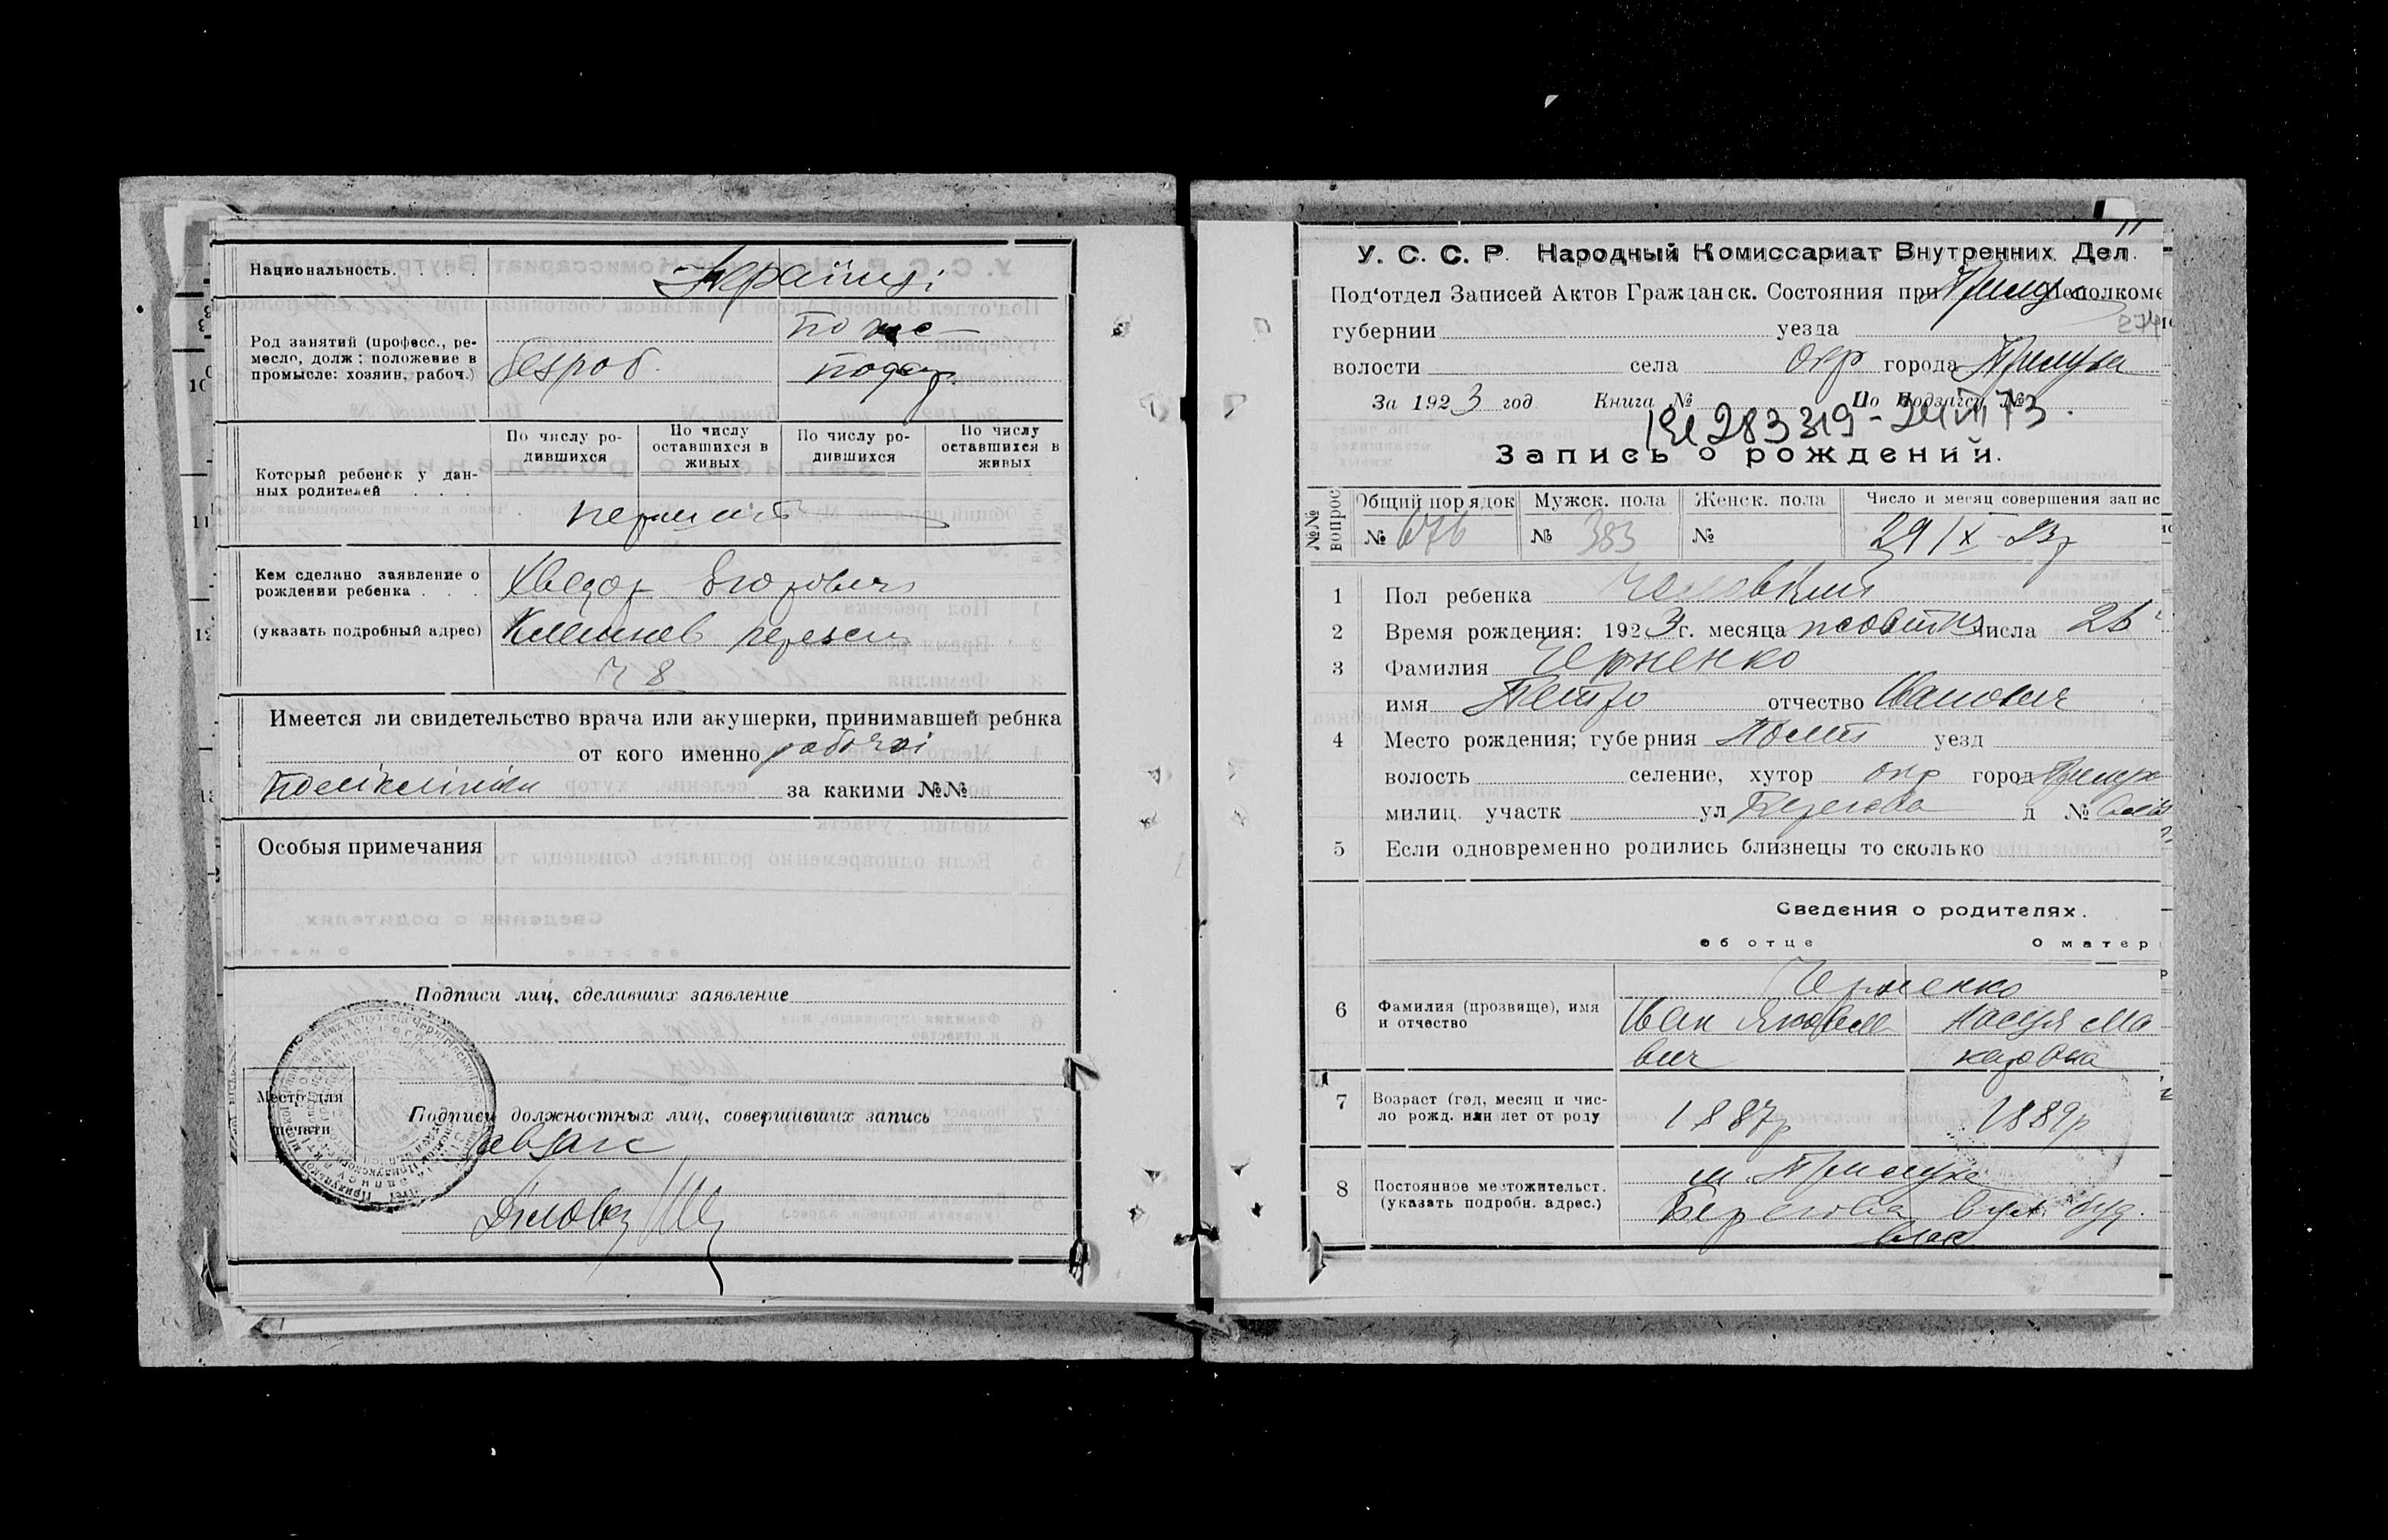 Национальность. Українці
Род занятий (професс., ре-
месло, долж: положение в
промысле: хозяин, рабоч.)
безроб.
подар
Который ребенок у дан-
ных родителей
По числу ро-
дившихся
По числу
оставшихся в
живых
По числу ро-
дившихся
По числу
оставшихся в
живых
Кем сделано заявление о
рождении ребенка . . .
(указать подробный адрес)
Хведор
№ 8
Имеется ли свидетельство врача или акушерки, принимавшей ребнка
от кого именно робочої
поліклініки за какими №№
Особыя примечания
Подписи лиц, сделавших заявление
Место для
печати
Подписи должностных лиц, совершивших запись
Завзагс
Діловод
У. С. С. Р. Народный Комиссариат Внутренних Дел.
Под‘отдел Записей Актов Гражданск. Состояния при
губернии уезда
274
волости села окр города Прилуки
За 1923 год Книга № По подзагсу №
283319 - 24 VII 73.
Запись о рождений.
№№
вопрос
Общий порядок
Мужск. пола
Женск. пола
Число и месяц совершения запис
№ 676
№ 383
№
29/X 23р
1 Пол ребенка Чоловічий
2 Время рождения: 1923г. месяца жовтня числа 26
3 Фамилия Черненко
имя Петро отчество Іванович
4 Место рождения; губерния Полт уезд
волость селение, хутор окр город Прилуки
милиц. участк ул Берегова д №
5 Если одновременно родились близнецы то сколько
Сведения о родителях.
об отце
О матер
6 Фамилия (прозвище), имя
и отчество
Черненко
Іван Якович
Настя Макаровна
7 Возраст (год, месяц и чис-
ло рожд. или лет от роду
1887р
1889р
8 Постоянное местожительст.
(указать подробн. адрес.)
м. Прилуки
Берегова вул. буд.
влас